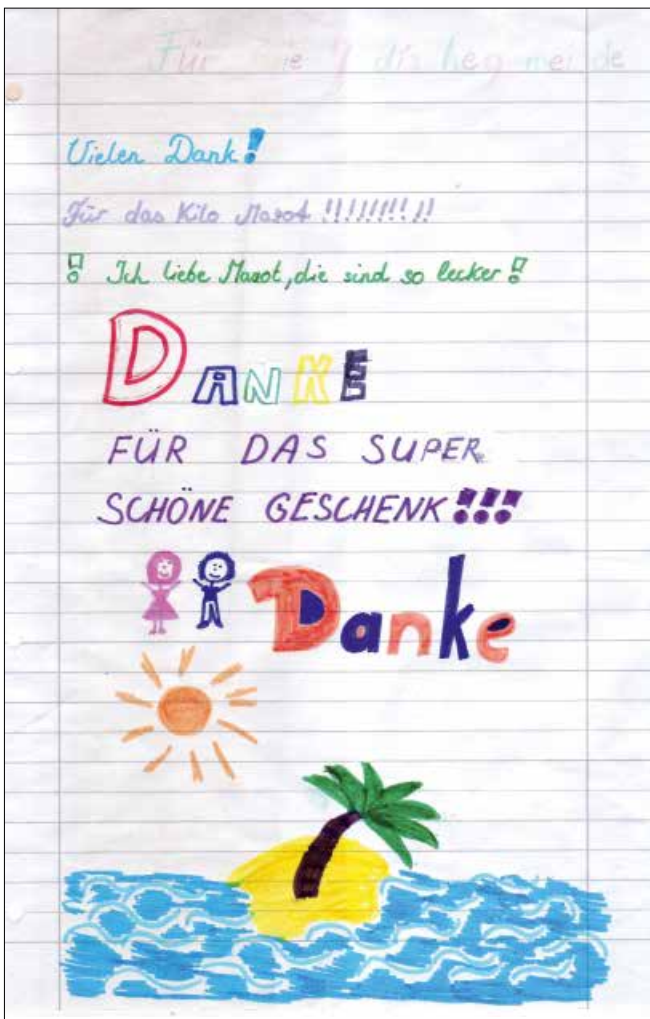 Für die Jüdische Gemeinde
Vielen Dank!
Für das Kilo Mazot !!!!!!!!!!
! Ich liebe Mazot, die sind so lecker !
DANKE
FÜR DAS SUPER
SCHÖNE GESCHENK!!!
Danke